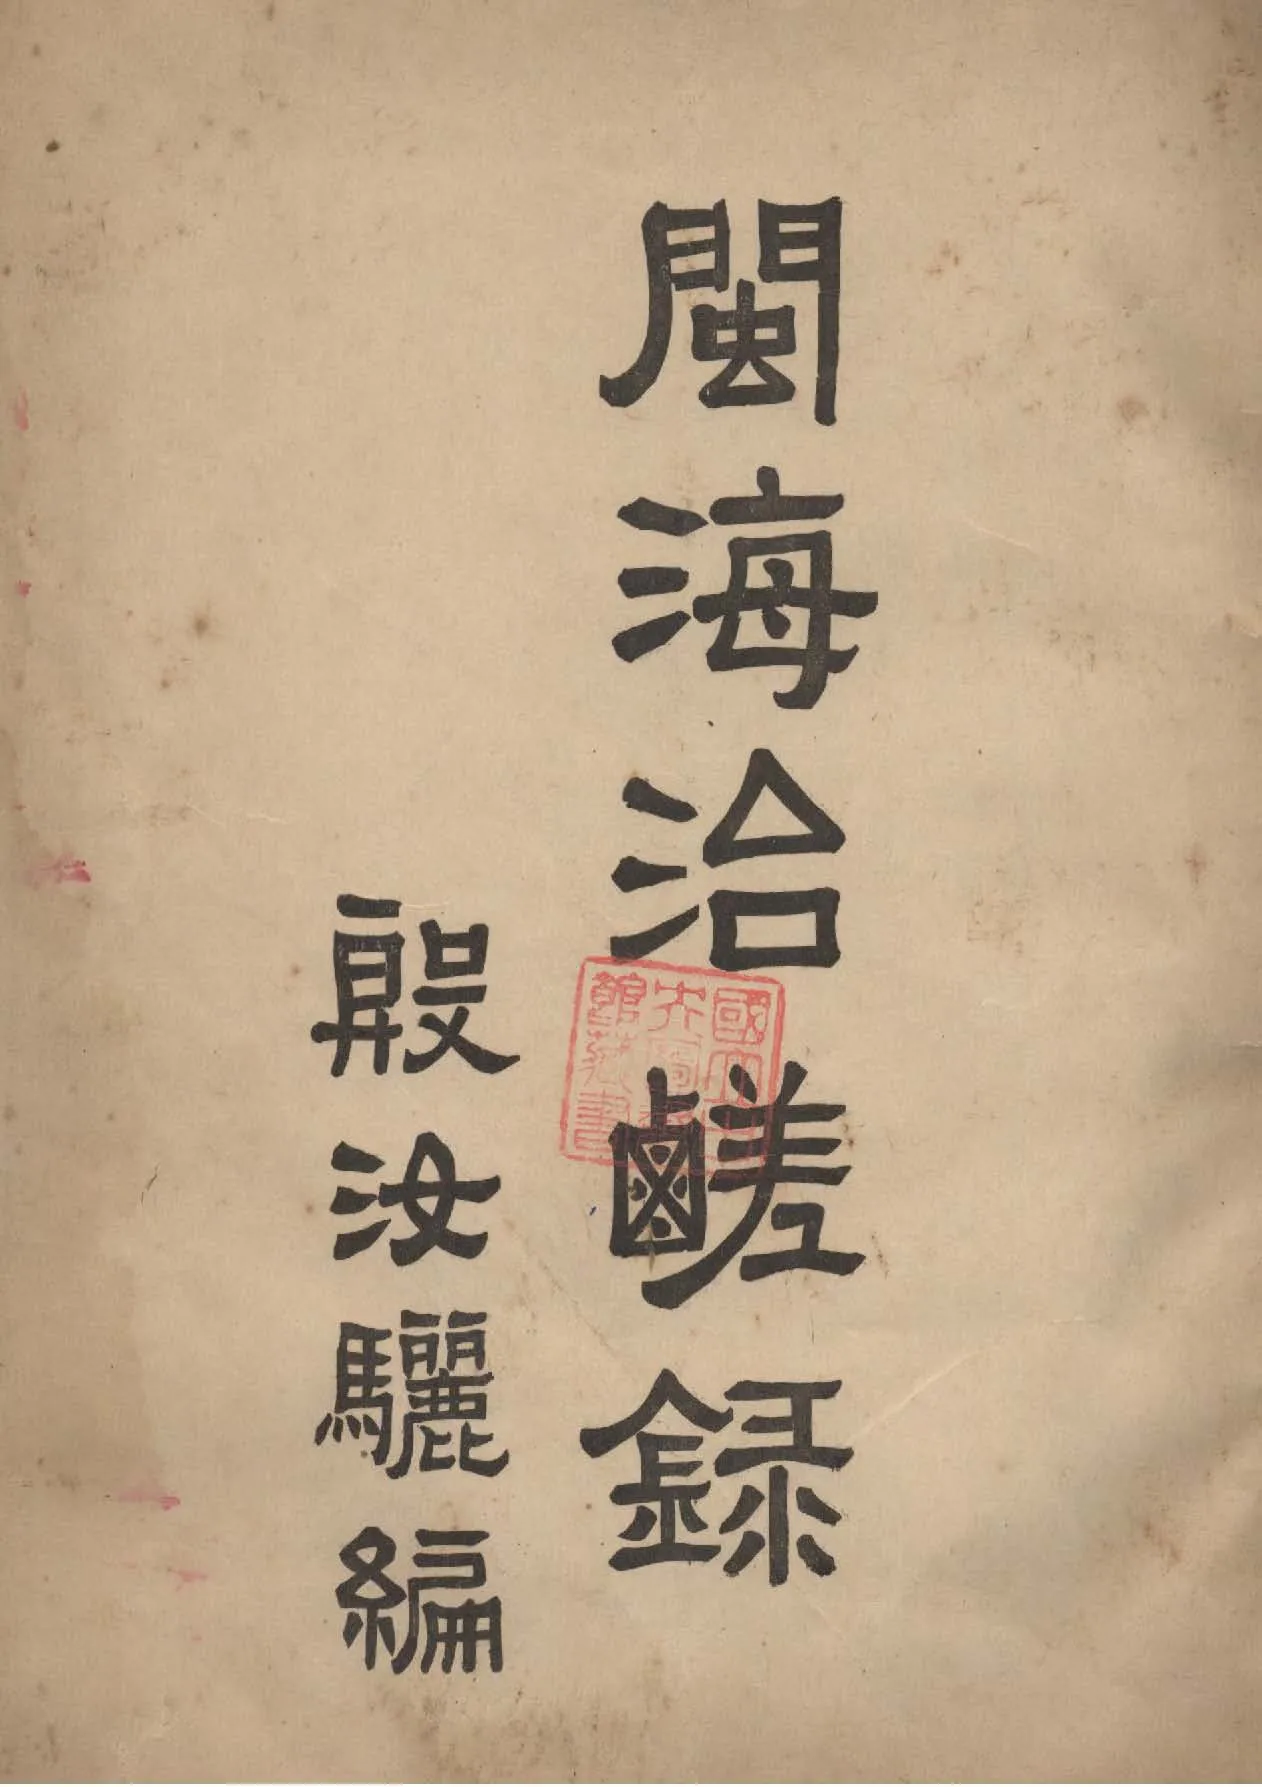 閩海治鹺錄
殷汝驪編
國立中
央圖書
館藏書